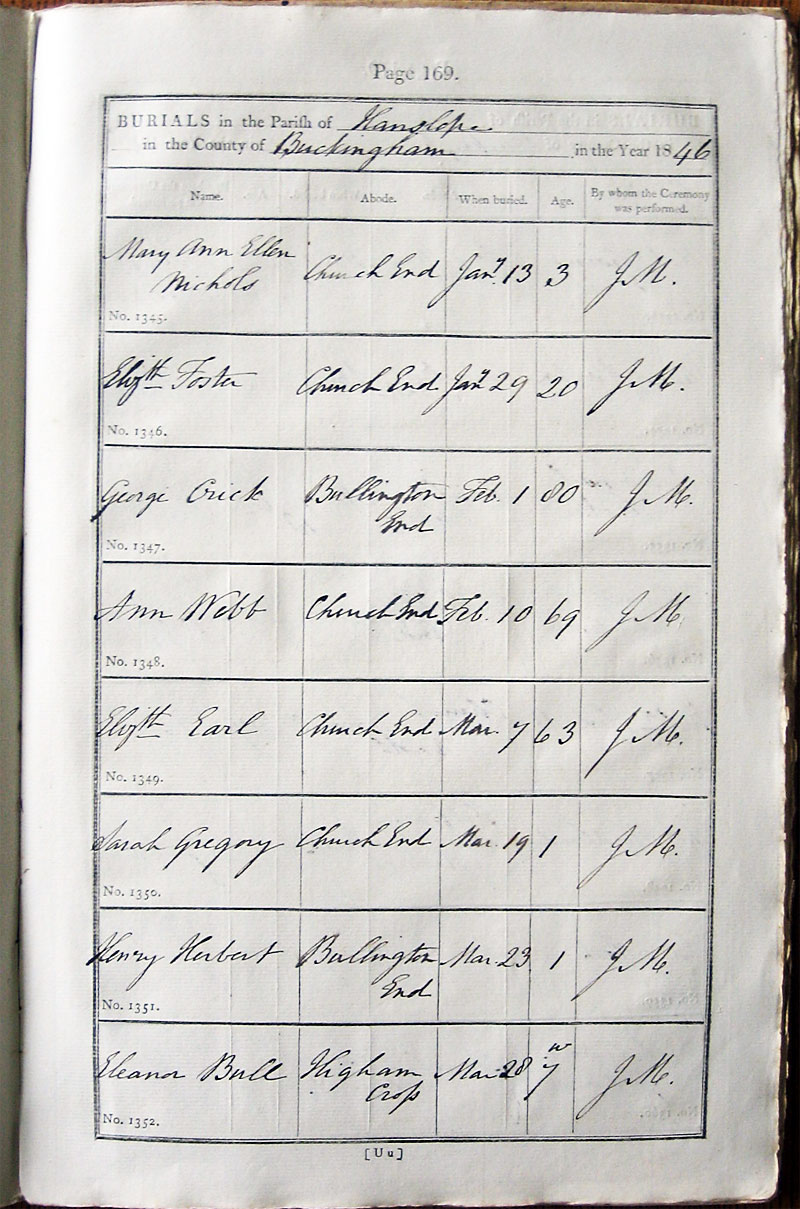 Page 169.
BURIALS in the Parish of Hanslope
in the County of Buckingham in the Year 1846
Name. Abode. When buried. Age. By whom the Ceremony was performed.
Mary Ann Ellen
Nichols Church End Jany. 13 3 J.M.
No. 1345.
Elizth Foster Church End Jany 29 20 J.M.
No. 1346.
George Crick Bullington Feb. 1 80 J.M.
End
No. 1347.
Ann Webb Church End Feb. 10 69 J.M.
No. 1348.
Elizth Earl Church End Mar. 7 63 J.M.
No. 1349.
Sarah Gregory Church End Mar. 19 1 J.M.
No. 1350.
Henry Herbert Bullington Mar. 23 1 J.M.
End
No. 1351.
Eleanor Bull Higham Mar. 28 7w J.M.
Cross
No. 1352.
[Uu]